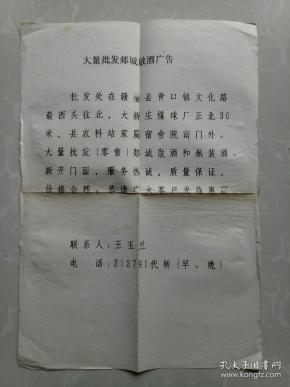 大量批发郯城散酒广告
批发处在赣榆县青口镇文化路
最西头往北，大新庄煤球厂正北30
米，县农科站家属宿舍院南门外。
大量批发(零售)郯城散酒和瓶装酒。
新开门面，服务热诚，质量保证，
价格合理。
联系人：王玉兰
电　话：212791代转(早、晚)
孔夫子旧书网